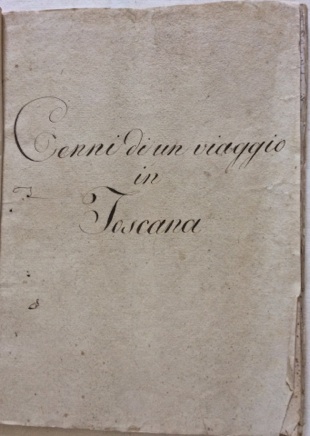 Cenni di un viaggio
in
Toscana